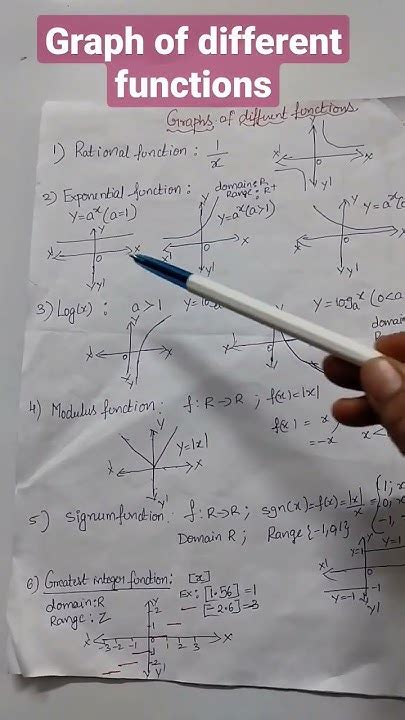 Graph of different
functions
Graphs of different functions
1) Rational function : 1/x
X' X
O
Y'
2) Exponential function : domain: R, Range: R+
Y=a^x (a=1) Y=a^x (a>1) Y=a^x
X' Y X O Y'
X' Y X O Y'
X' Y X O Y'
3) Log(x) : a>1 Y=log_a^x (0<a
domai
Ran
X' Y X O Y'
4) Modulus function : f: R→R ; f(x)=|x|
f(x) = x
= -x x<
Y=|x|
X' Y X O Y'
5) Signum function : f: R→R ; sgn(x)=f(x)=|x|/x = {1; x
0, x
-1,
Domain R ; Range {-1,0,1}
Y=1 Y Y=1
X' O
Y=-1 -1
Y'
6) Greatest integer function : [x]
domain: R Ex: [1.56] = 1
Range: Z [-2.6] = -3
Y 2
1
X' -3 -2 -1 1 2 3 X
-2
Y'